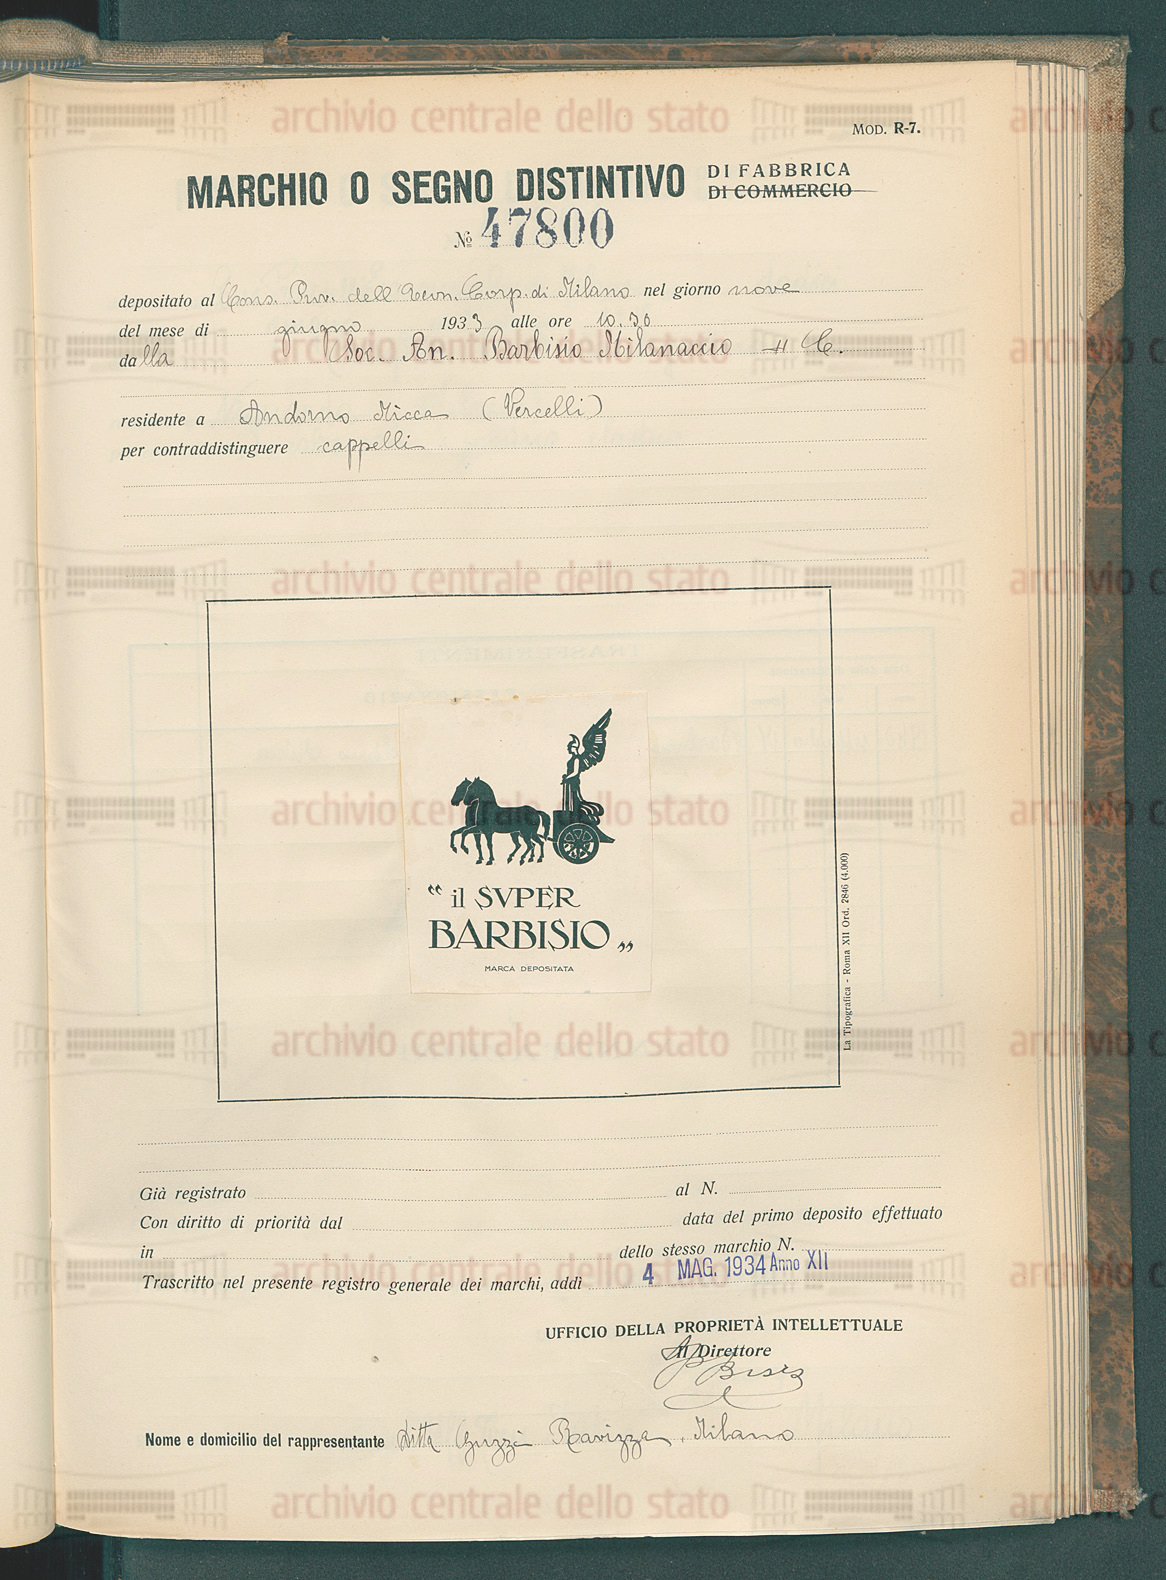 MOD. R-7.
MARCHIO O SEGNO DISTINTIVO DI FABBRICA
DI COMMERCIO
No 47800
depositato al Cons. Prov. dell Econ. Corp. di Milano nel giorno nove
del mese di giugno 1933 alle ore 10.30
dalla Soc. An. Barbisio Milanaccio & C.
residente a Andorno Micca (Vercelli)
per contraddistinguere cappelli
“ il SVPER
BARBISIO „
MARCA DEPOSITATA
La Tipografica - Roma XII Ord. 2846 (4.000)
Già registrato al N.
Con diritto di priorità dal data del primo deposito effettuato
in dello stesso marchio N.
Trascritto nel presente registro generale dei marchi, addì 4 MAG. 1934 Anno XII
UFFICIO DELLA PROPRIETÀ INTELLETTUALE
Il Direttore
Nome e domicilio del rappresentante Ditta Guzzi Ravizza, Milano
archivio centrale dello stato
archivio centrale dello stato
archivio centrale dello stato
archivio centrale dello stato
archivio centrale dello stato
archivio centrale dello stato
archivio centrale dello stato